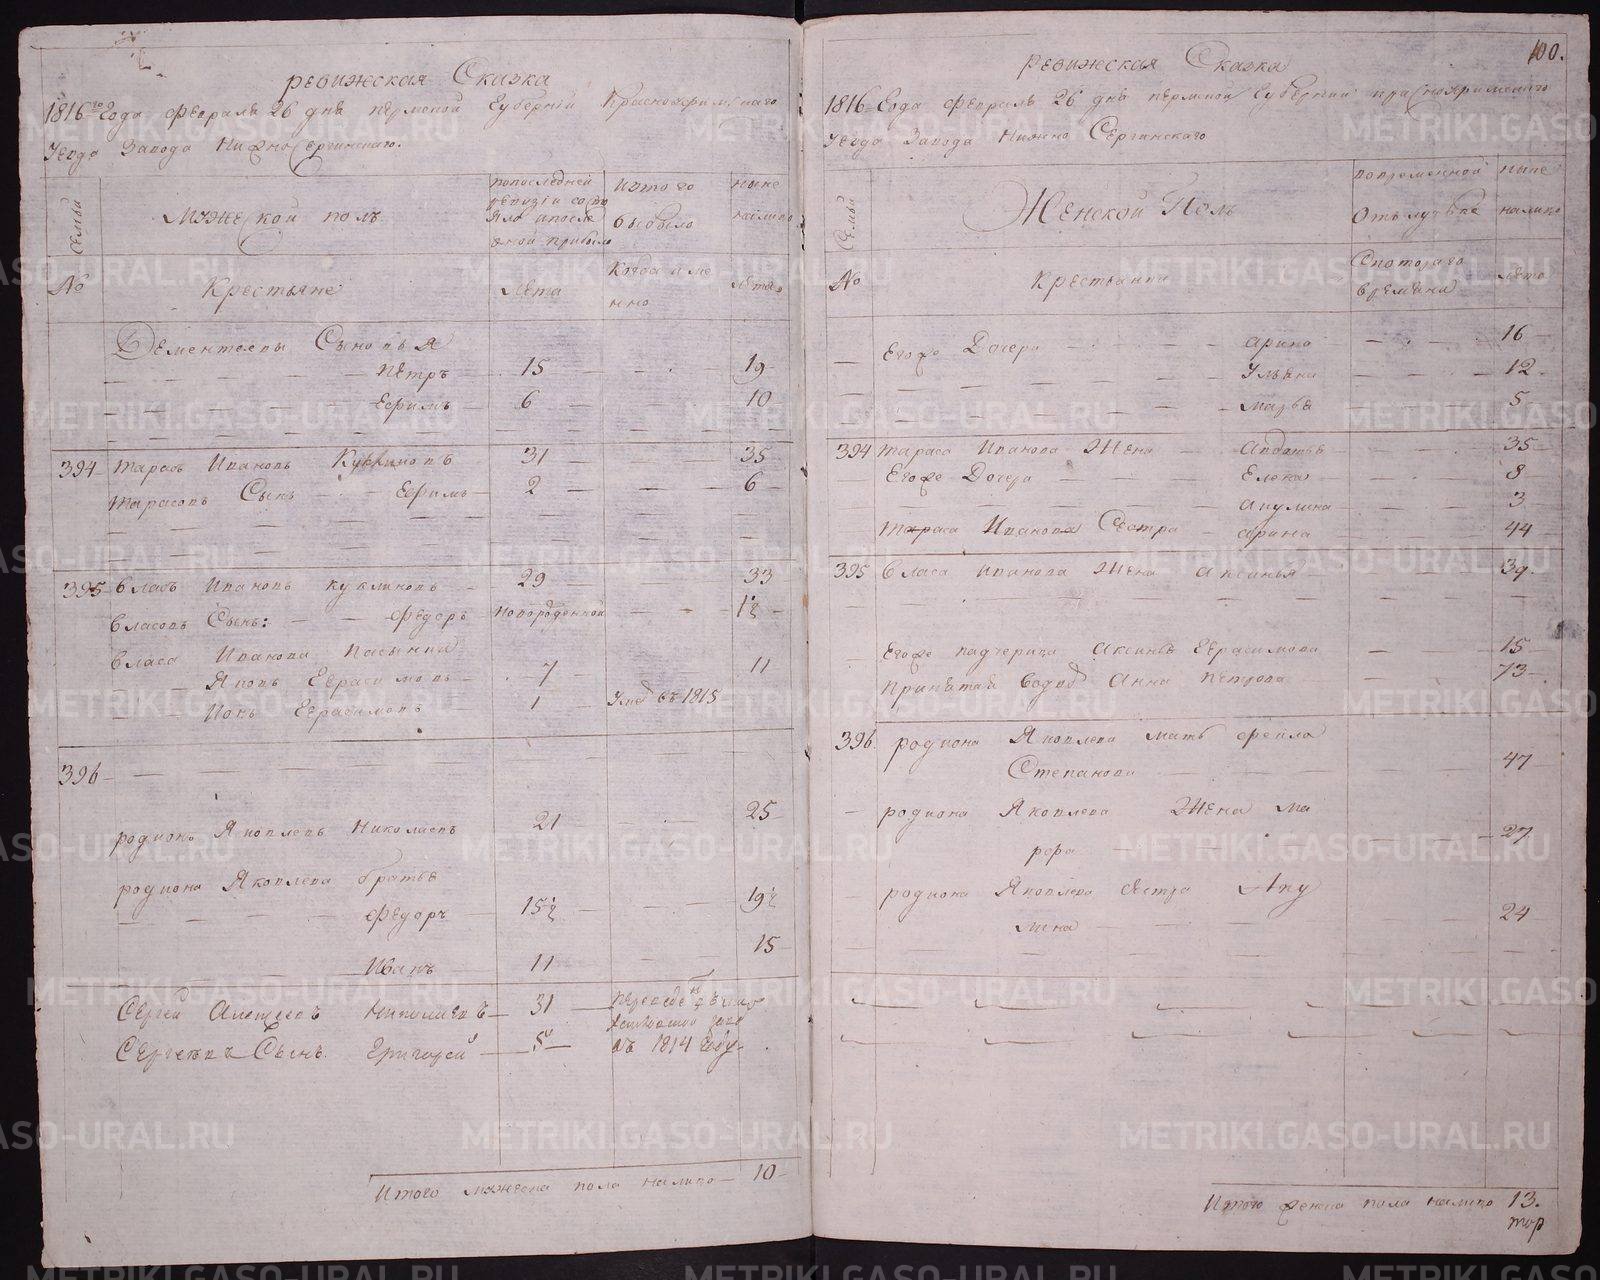 Ревижская Сказка
1816го Года февраля 26 дня пермской Губерній Красноуфимскаго
Уезда Завода Нижносергинскаго.
Семьи
Мужеской полъ
попоследней ревизіи состояло ипосле оной прибыло
Изтого выбыло
ныне налицо
No
Крестьяне
Лета
Когда имено
Лета
Дементеевы Сыновья
Петръ 15 19
Ефимъ 6 10
394 тарасъ Ивановъ Куклиновъ 31 35
тарасовъ Сынъ Ефимъ 2 6
395 власъ Ивановъ куклиновъ 29 33
власовъ Сынъ: Федоръ новорожденной 1½
власа Иванова пасынки
Яковъ Герасимовъ 7 11
Ионъ Герасимовъ 1 Умре въ 1815
396
родионъ Яковлевъ Николаевъ 21 25
родиона Яковлева братья
Федоръ 15½ 19½
Иванъ 11 15
Сергей Алексеевъ Николаевъ 31
Сергеевъ Сынъ Григорей 5 въ 1814 Году
Итого мужеска пола налицо 10
100.
Ревижская Сказка
1816 Года февраля 26 дня пермской Губерніи красноуфимскаго
Уезда Завода Нижно Сергинскаго
Семьи
Женской Полъ
вовременной отълучьке
ныне налицо
No
Крестьянки
Скоторого времени
лета
Егоже Дочери арина 16
Ульяна 12
марья 5
394 тараса Иванова Жена авдотья 35
Егоже Дочери Елена 8
акулина 3
тараса Иванова Сестра арина 44
395 власа иванова Жена аксинья 39
Егоже падчерица аксинья Герасимова 15
Принятая вдова Анна петрова 73
396 родиона Яковлева мать фекла
Степанова 47
родиона Яковлева Жена ма
вра 27
родиона Яковлева сестра Аку
лина 24
Итого женска пола налицо 13.
METRIKI.GASO-URAL.RU